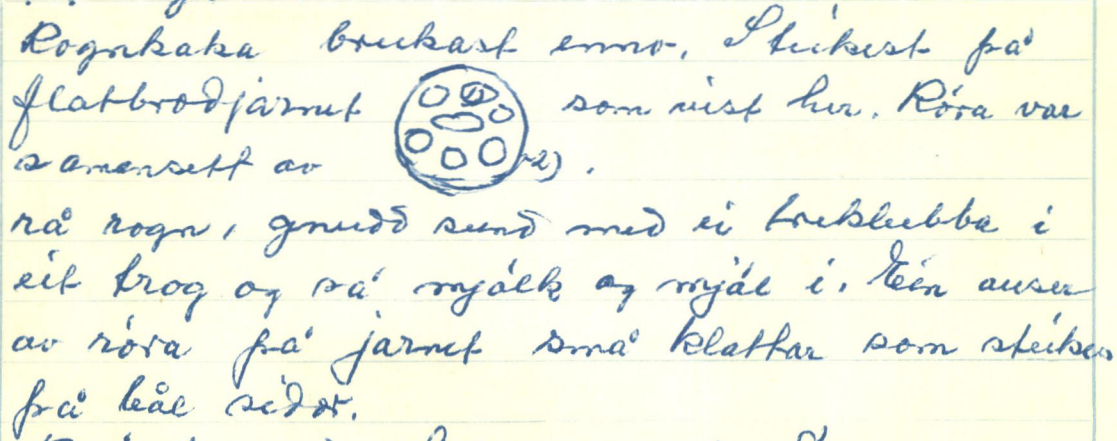 Rognkaka brukast enno. Steikest på
flatbrødjarnet som vist her. Røra var
samansett av 2).
rå rogn, gnudd sund med ei treklubba i
eit trog og så mjølk og mjøl i. Ein auser
av røra på jarnet små klattar som steikes
på båe sider.